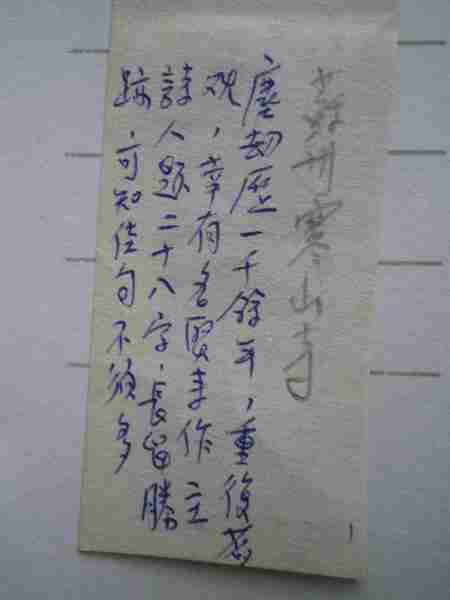 蘇州寒山寺
塵劫歷一千餘年，重復舊
观，幸有名贤来作主
詩人题二十八字，長留勝
跡，可知佳句不须多
1